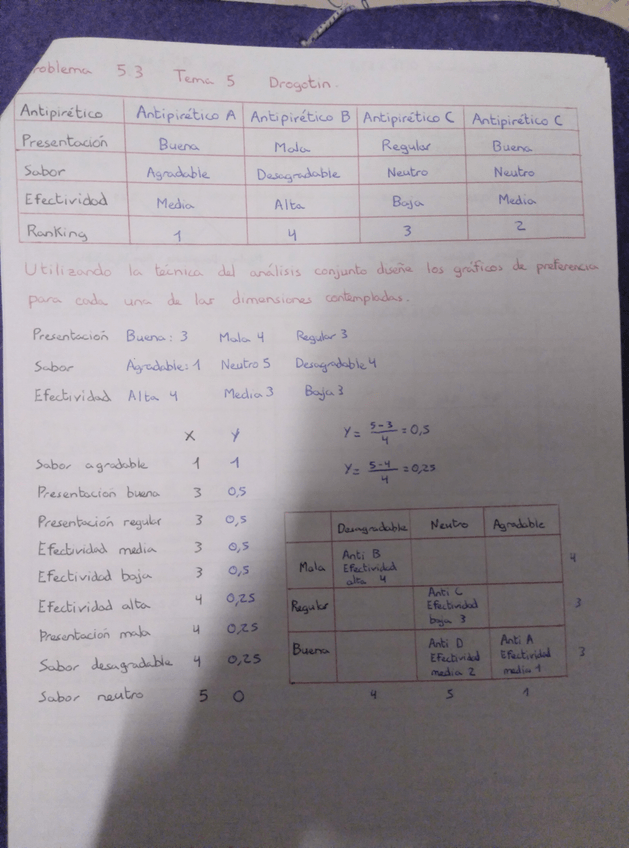 roblema 5.3 Tema 5 Drogotin.
Antipirético Antipirético A Antipirético B Antipirético C Antipirético C
Presentación Buena Mala Regular Buena
Sabor Agradable Desagradable Neutro Neutro
Efectividad Media Alta Baja Media
Ranking 1 4 3 2
Utilizando la técnica del análisis conjunto diseñe los gráficos de preferencia
para cada una de las dimensiones contempladas.
Presentación Buena: 3 Mala 4 Regular 3
Sabor Agradable: 1 Neutro 5 Desagradable 4
Efectividad Alta 4 Media 3 Baja 3
X Y
Sabor agradable 1 1
Presentacion buena 3 0,5
Presentación regular 3 0,5
Efectividad media 3 0,5
Efectividad baja 3 0,5
Efectividad alta 4 0,25
Presentacion mala 4 0,25
Sabor desagradable 4 0,25
Sabor neutro 5 0
Y = 5-3/4 = 0,5
Y = 5-4/4 = 0,25
Desagradable Neutro Agradable
Mala Anti B Efectividad alta 4 4
Regular Anti C Efectividad baja 3 3
Buena Anti D Efectividad media 2 Anti A Efectividad media 1 3
4 5 1